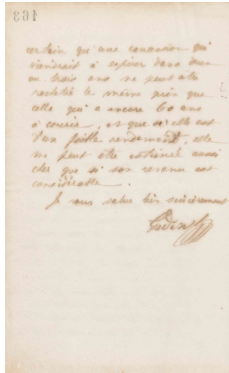 certain qu'une concession qui
viendrait à expirer dans deux
ou trois ans ne peut etre
rachetée le même prix que
celle qui a encore 60 ans
à courir, et que si elle est
d'un faible rendement, elle
ne peut être estimée aussi
cher que si son revenu est
considérable.
Je vous salue bien sincèrement
Godin